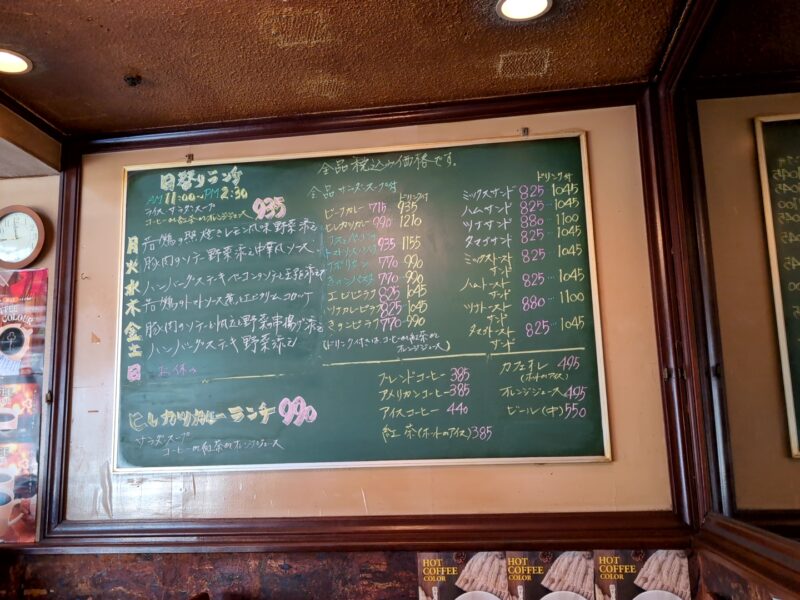 全品税込み価格です。
日替りランチ
AM 11:00〜PM 2:30
ライス サラダ スープ
コーヒーか紅茶かオレンジジュース 935
月 若鶏の照り焼きレモン風味野菜添え
火 豚肉のソテー野菜添え中華風ソース
水 ハンバーグステキ
木 若鶏のトマトソース煮
金 豚肉のソテー
土 ハンバーグステキ野菜添え
日 お休み
ヒレカツカレーランチ 990
サラダ、スープ
コーヒーか紅茶かオレンジジュース
全品サラダ、スープ付 ドリンク付
ビーフカレー 715 935
ヒレカツカレー 990 1210
935 1155
ナポリタン 770 990
770 990
エビピラフ 825 1045
ツナカレーピラフ 825 1045
チキンピラフ 770 990
(ドリンク付きは、コーヒーか紅茶か
オレンジジュース)
ドリンク付
ミックスサンド 825 1045
ハムサンド 825 1045
ツナサンド 880 1100
タマゴサンド 825 1045
ミックストースト
サンド 825 1045
ハムトースト
サンド 825 1045
ツナトースト
サンド 880 1100
タマゴトースト
サンド 825 1045
ブレンドコーヒー 385
アメリカンコーヒー 385
アイスコーヒー 440
紅茶(ホットorアイス) 385
カフェオレ 495
(ホットorアイス)
オレンジジュース 495
ビール(中) 550
HOT
COFFEE
COLOR
HOT
COFFEE
COLOR
HOT
COFFEE
COLOR